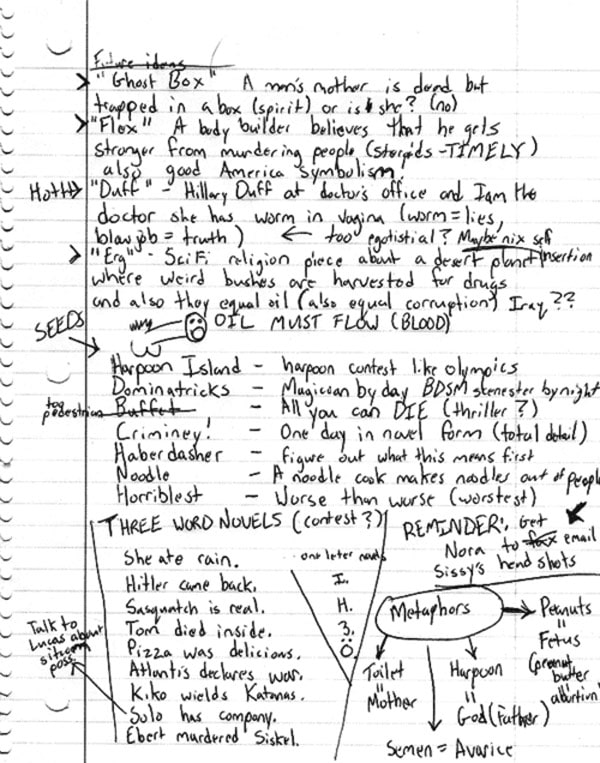 Future ideas
> "Ghost Box" A man's mother is dead but
trapped in a box (spirit) or is she? (no)
> "Flex" A body builder believes that he gets
stronger from murdering people (steroids - TIMELY)
also good America symbolism.
Hott!> "Duff" - Hillary Duff at doctor's office and I am the
doctor she has worm in vagina (worm = lies,
blowjob = truth) ← too egotistial? Maybe nix self insertion
> "Erg" - SciFi religion piece about a desert planet
where weird bushes are harvested for drugs
and also they equal oil (also equal corruption) Iraq??
OIL MUST FLOW (BLOOD)
SEEDS
Harpoon Island - harpoon contest like olympics
Dominatricks - Magician by day BDSM scenester by night
too pedestrian Buffet - All you can DIE (thriller?)
Criminey! - One day in novel form (total detail)
Haberdasher - figure out what this means first
Noodle - A noodle cook makes noodles out of people
Horriblest - Worse than worse (worstest)
THREE WORD NOVELS (contest?)
She ate rain.
Hitler came back.
Sasquatch is real.
Tom died inside.
Pizza was delicious.
Atlantis declares war.
Kiko wields Katanas.
Solo has company.
Ebert murdered Siskel.
Talk to
Lucas about
sitcom
poss.
one leter novels
I.
H.
3.
Ö.
REMINDER: Get
Nora to fax email
Sissy's head shots
Metaphors
Peanuts
=
Fetus
(peanut
butter
abortion)
Toilet
=
Mother
Harpoon
=
God (Father)
Semen = Avarice